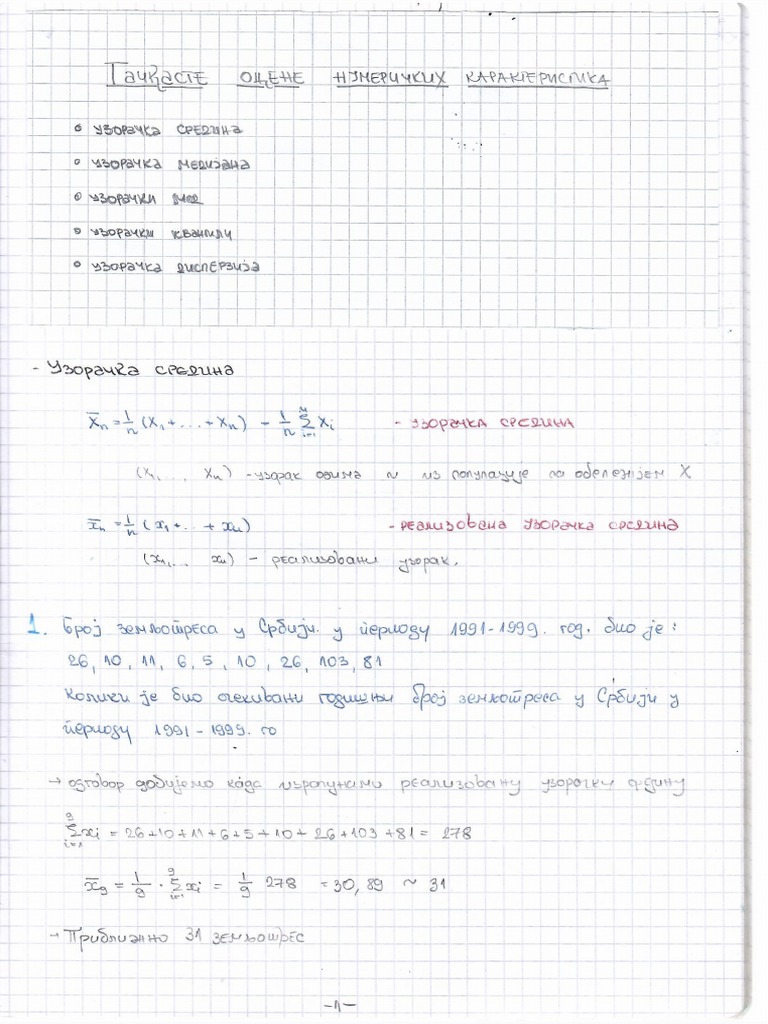 Тачкасте оцене нумеричких карактеристика
• узорачка средина
• узорачка медијана
• узорачки мод
• узорачки квантили
• узорачка дисперзија
- Узорачка средина
X̄n = 1/n (X1 + ... + Xn) = 1/n Σ_{i=1}^{n} Xi - узорачка средина
(X1, ... Xn) - узорак обима n из популације са обележјем X
x̄n = 1/n (x1 + ... + xn) - реализована узорачка средина
(x1, ... xn) - реализовани узорак.
1. Број земљотреса у Србији у периоду 1991-1999. год. био је:
26, 10, 11, 6, 5, 10, 26, 103, 81
Колики је био очекивани годишњи број земљотреса у Србији у
периоду 1991-1999. го
→ одговор добијемо када израчунамо реализовану узорачку средину
Σ_{i=1}^{9} xi = 26+10+11+6+5+10+26+103+81 = 278
x̄9 = 1/9 · Σ_{i=1}^{9} xi = 1/9 278 = 30,89 ~ 31
→ Приближно 31 земљотрес
-1-